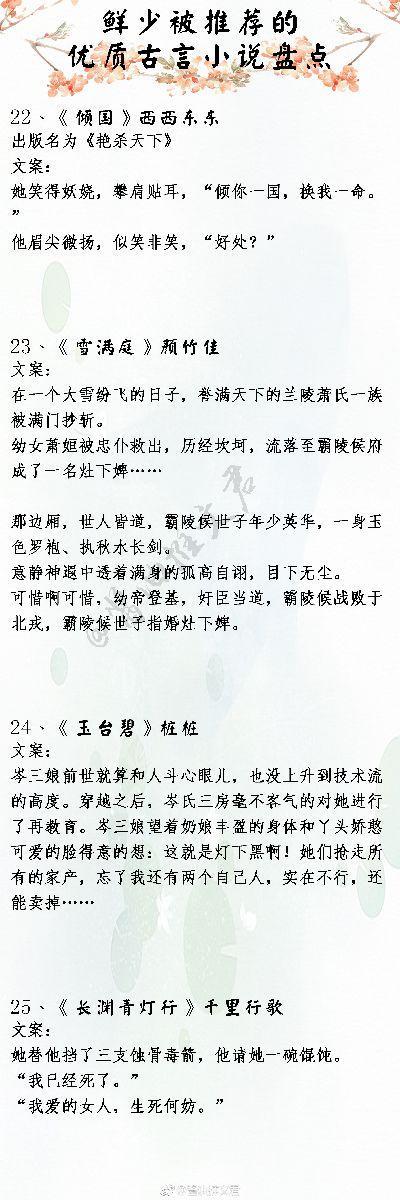 鲜少被推荐的
优质古言小说盘点
22、《倾国》西西东东
出版名为《艳杀天下》
文案：
她笑得妖娆，攀肩贴耳，“倾你一国，换我一命。
”
他眉尖微扬，似笑非笑，“好处？”
23、《雪满庭》颜竹佳
文案：
在一个大雪纷飞的日子，誉满天下的兰陵萧氏一族
被满门抄斩。
幼女萧姮被忠仆救出，历经坎坷，流落至霸陵侯府
成了一名灶下婢……
那边厢，世人皆道，霸陵侯世子年少英华，一身玉
色罗袍、执秋水长剑。
意静神遐中透着满身的孤高自诩，目下无尘。
可惜啊可惜，幼帝登基，奸臣当道，霸陵候战败于
北戎，霸陵候世子指婚灶下婢。
24、《玉台碧》桩桩
文案：
岑三娘前世就算和人斗心眼儿，也没上升到技术流
的高度。穿越之后，岑氏三房毫不客气的对她进行
了再教育。岑三娘望着奶娘丰盈的身体和丫头娇憨
可爱的脸得意的想：这就是灯下黑啊！她们抢走所
有的家产，忘了我还有两个自己人，实在不行，还
能卖掉……
25、《长渊青灯行》千里行歌
文案：
她替他挡了三支蚀骨毒箭，他请她一碗馄饨。
“我已经死了。”
“我爱的女人，生死何妨。”